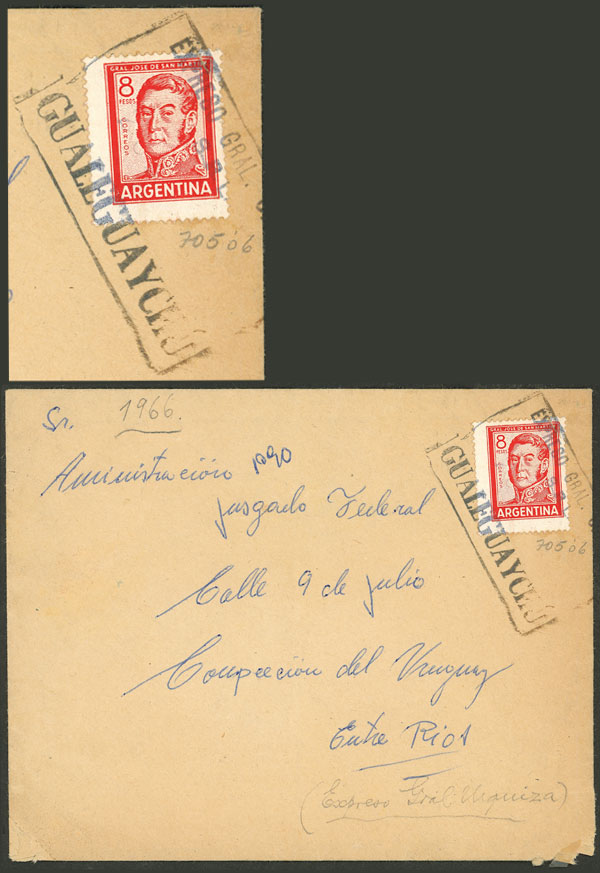 GRAL. JOSE DE SAN MARTIN
8
PESOS
CORREOS
ARGENTINA
EXPRESO GRAL.
GUALEGUAYCHÚ
70506
Sr. 1966.
Aministración pgo
jusgado Federal
Calle 9 de julio
Conpceción del Uruguay
Entre Rios
(Expreso Gral Urquiza)
GRAL. JOSE DE SAN MARTIN
8
PESOS
CORREOS
ARGENTINA
EXPRESO GRAL.
GUALEGUAYCHÚ
70506